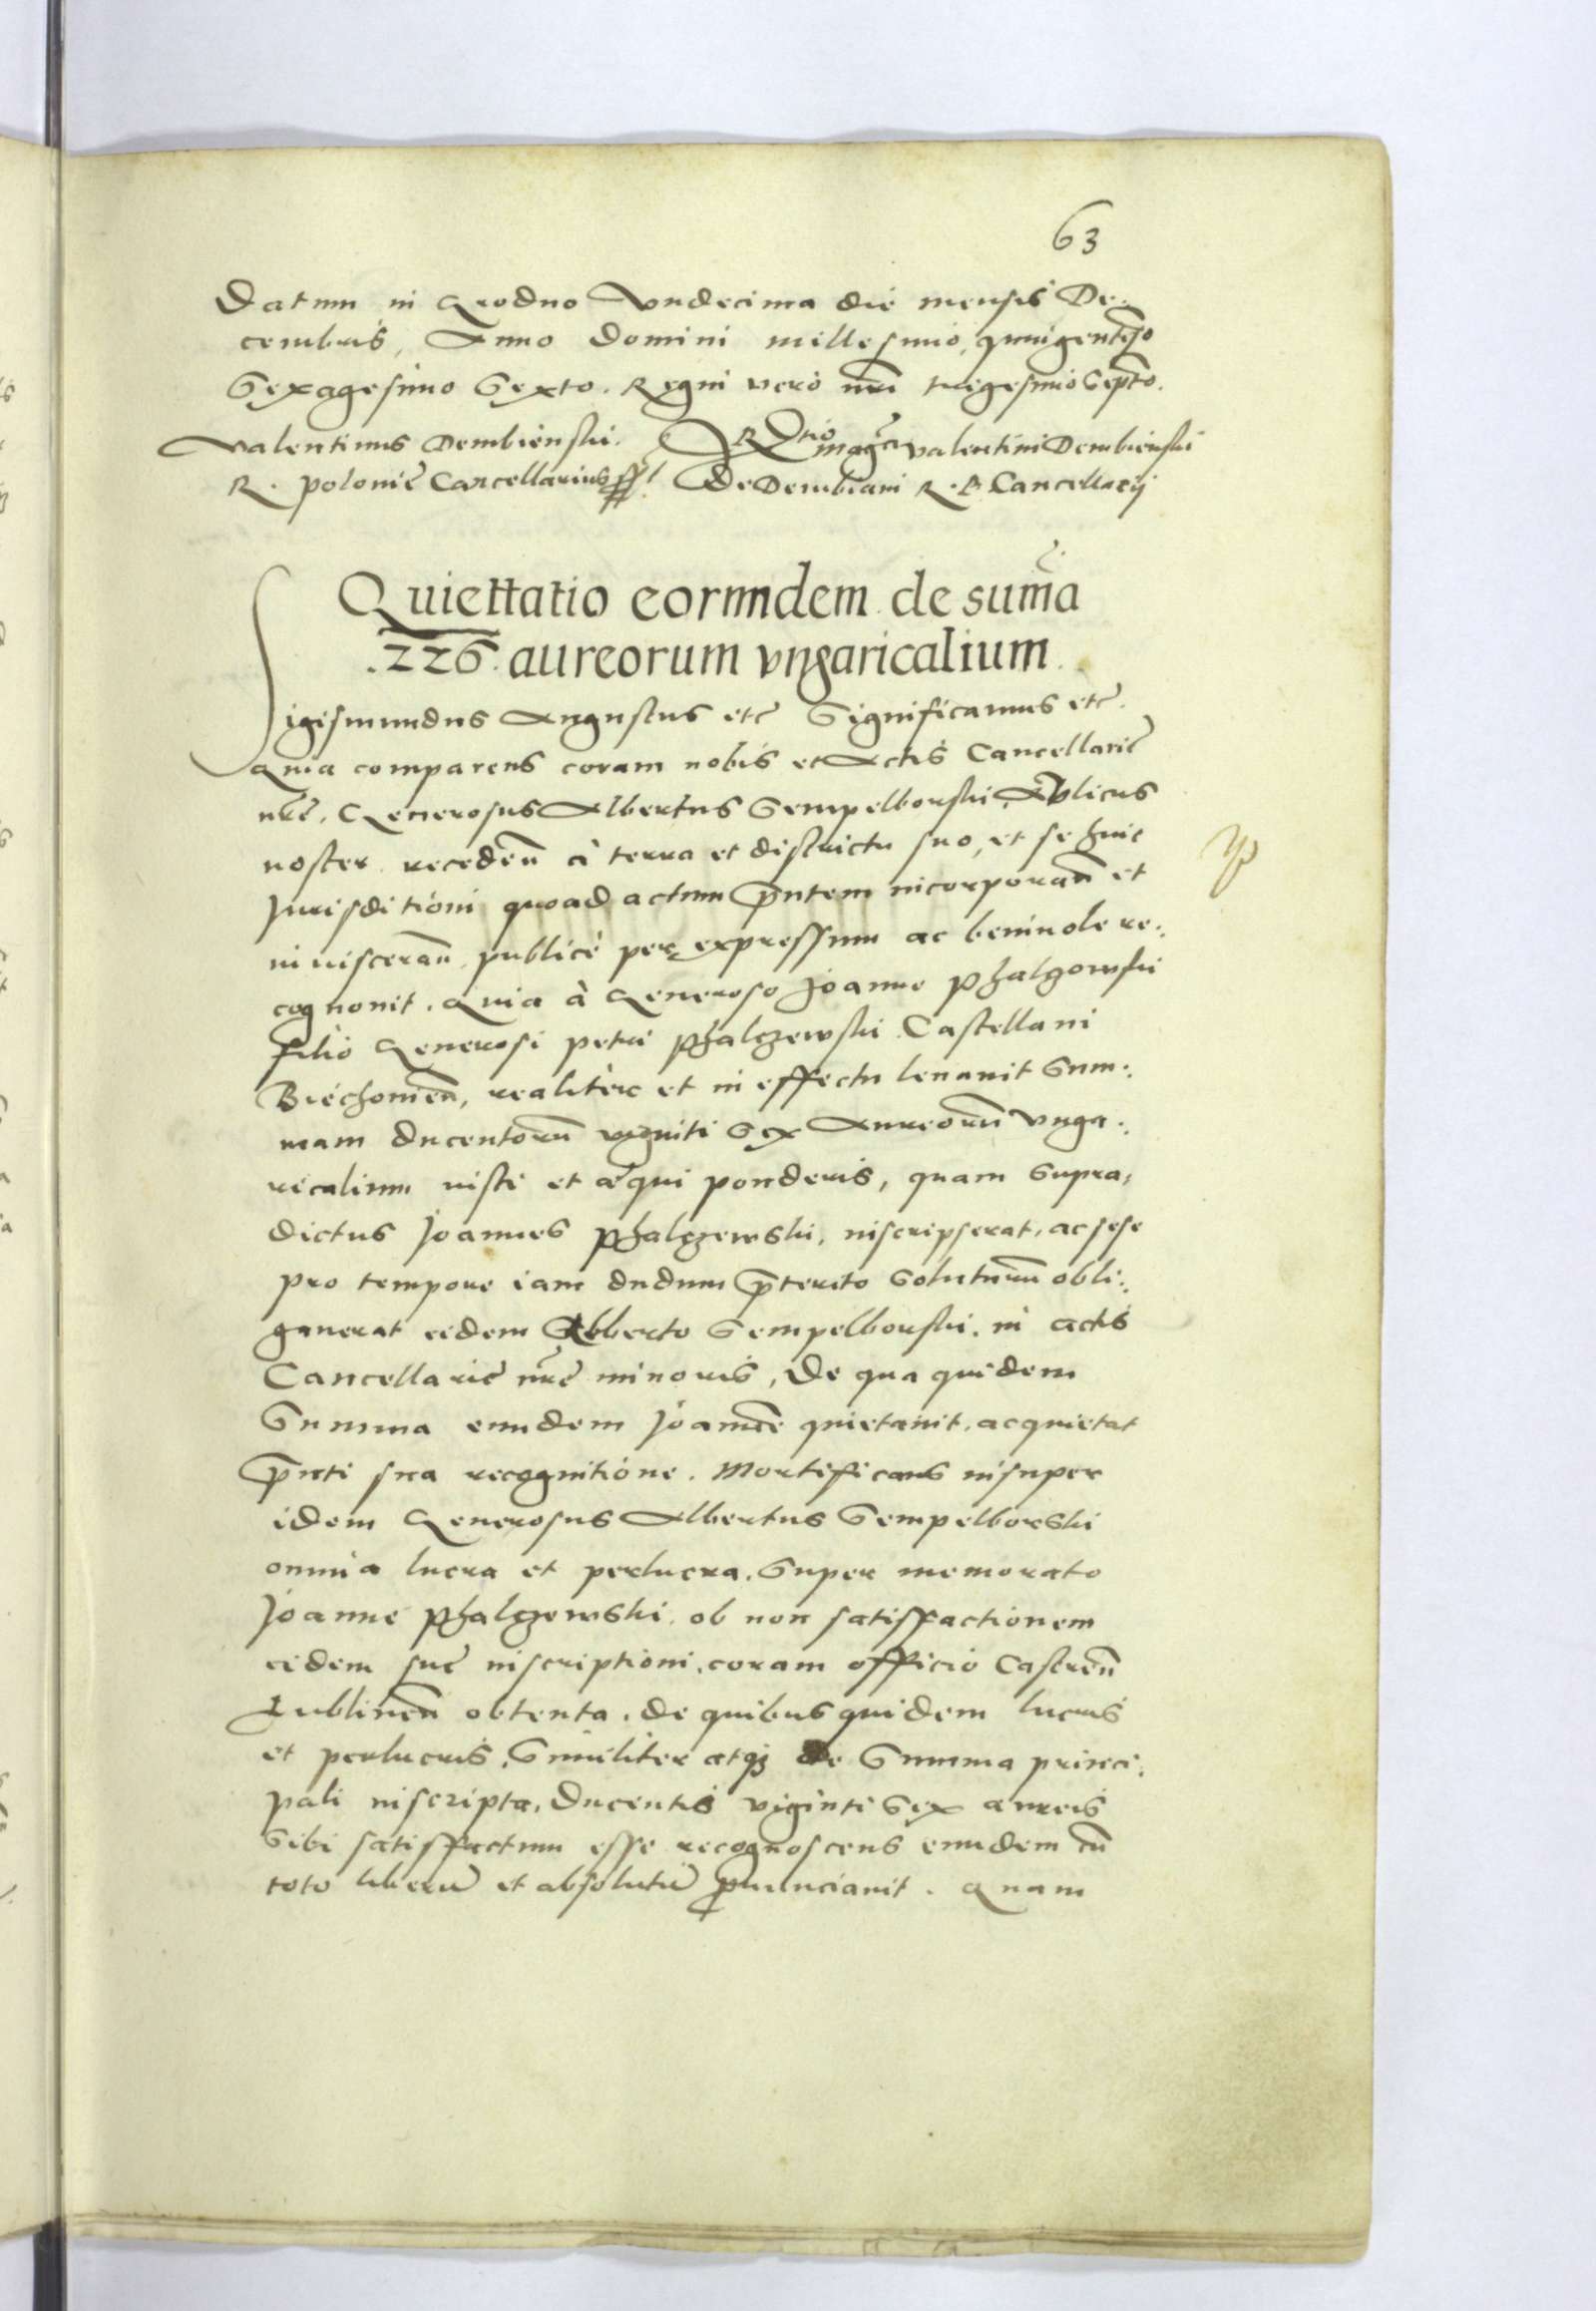 63
Datum in Grodno Vndecima die mensis De:
cembris, Anno Domini millesimo, quingentẽo
Sexagesimo Sexto. Regni vero nrĩ trigesimo Septo.
Valentinus Dembienski. Rtio magci Valentini Dembienski
R. Polonie Cancellarius sst De Dembiani R. P. Cancellarij
Quiettatio eorundem de suma
.226. aureorum vngaricalium
Sigismundus Augustus etc Significamus etc.
Quia comparens coram nobis et Actis Cancellarie
nrẽ. Generosus Albertus Sempelborski, Aulicus
noster recedeñ à terra et districtu suo, et se huic
Jurisditioni quoad actum p̃ntem incorporañ et
inuiscerañ publicè per expressum ac beniuole re:
cognouit. Quia à Generoso Joanne Phalgowski
filio Generosi Petri Phalgzewski Castellani
Biechomeñ, realiter et in effectu leuauit Sum:
mam ducentorũ viginti Sex Aureorũ Vnga:
ricalium iusti et æqui ponderis, quam Supra,
dictus Joannes Phalczewski, inscripserat, ac sese
pro tempore iam dudum p̃terito Soluturũ obli:
gauerat eidem Alberto Sempelborski, in actis
Cancellarie nrẽ minoris, De qua quidem
Summa eundem Joannẽ quietauit, ac quietat
p̃nti sua recognitione. Mortificans insuper
idem Generosus Albertus Sempelborski
omnia lucra et perlucra, Super memorato
Joanne Phalczewski ob non satisfactionem
eidem sue inscriptioni, coram officio Castreñ
Lublineñ obtenta, de quibus quidem lucris
et perlucris, Similiter atq; de Summa princi:
pali inscripta, Ducentis viginti Sex aureis
Sibi satisfactum esse recognoscens eundem cũ
toto liberũ et absolutũ pnunciauit. Quam